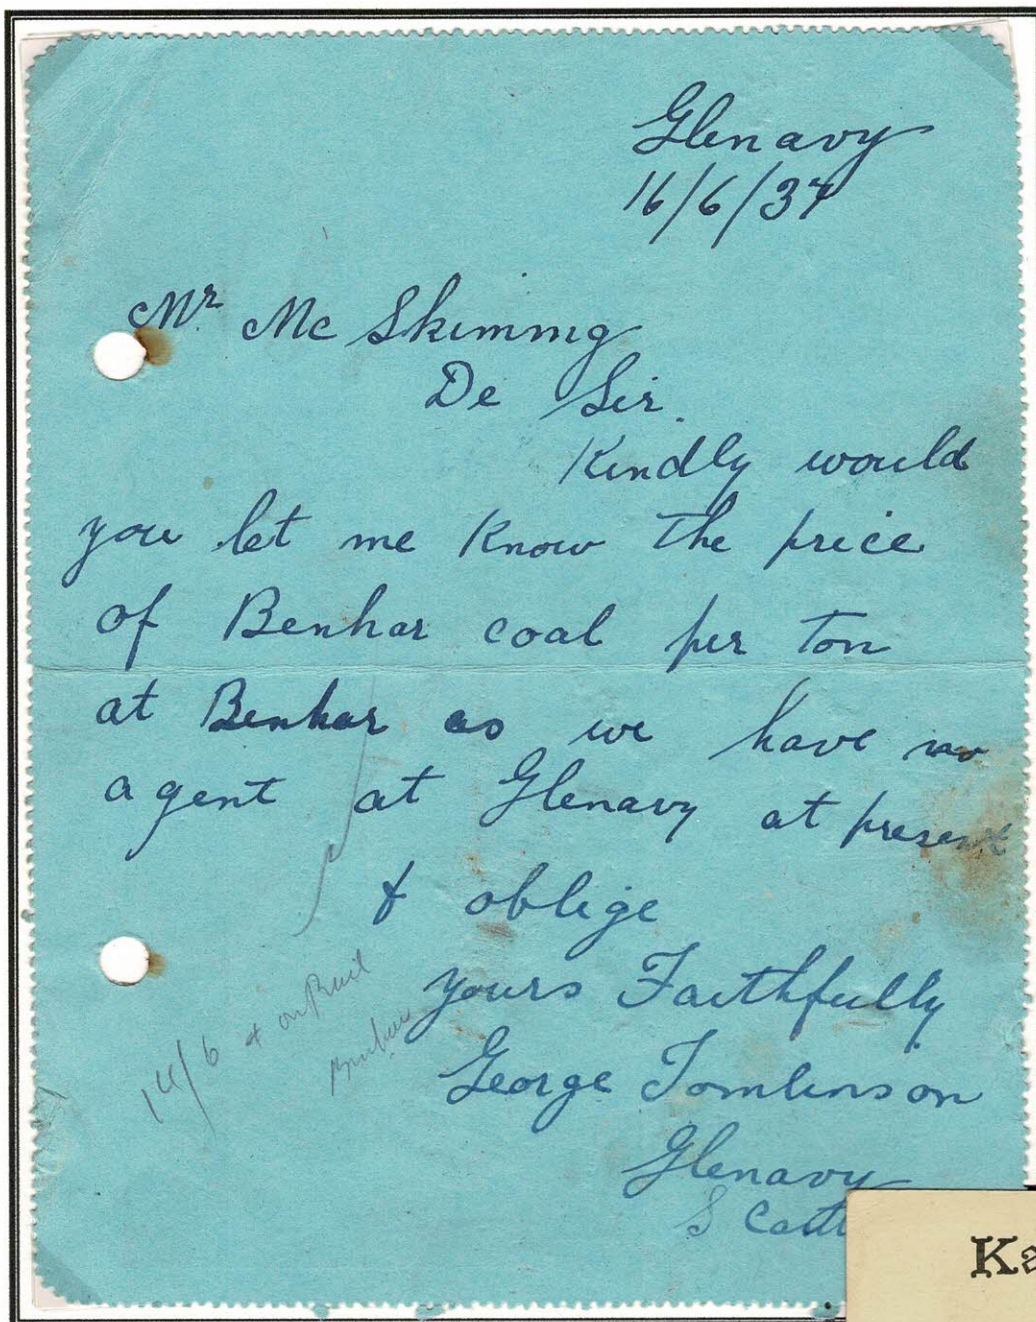 Glenavy
16/6/37
Mr Mc Skimmg
De Sir.
Kindly would
you let me know the price
of Benhar coal per ton
at Benhar as we have no
agent at Glenavy at present
& oblige
yours Faithfully
George Tomlinson
Glenavy
S Cant
14/6 + on Rail
Benhar
Ka